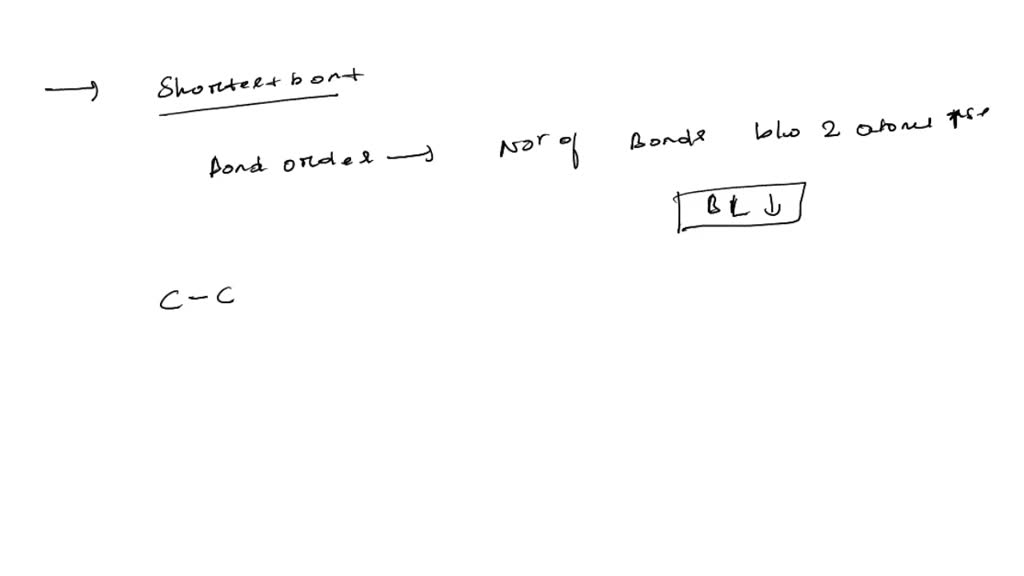 → Shortest bont
Bond order → Nor of Bonds b/w 2 atoms ↑se
BL ↓
C - C